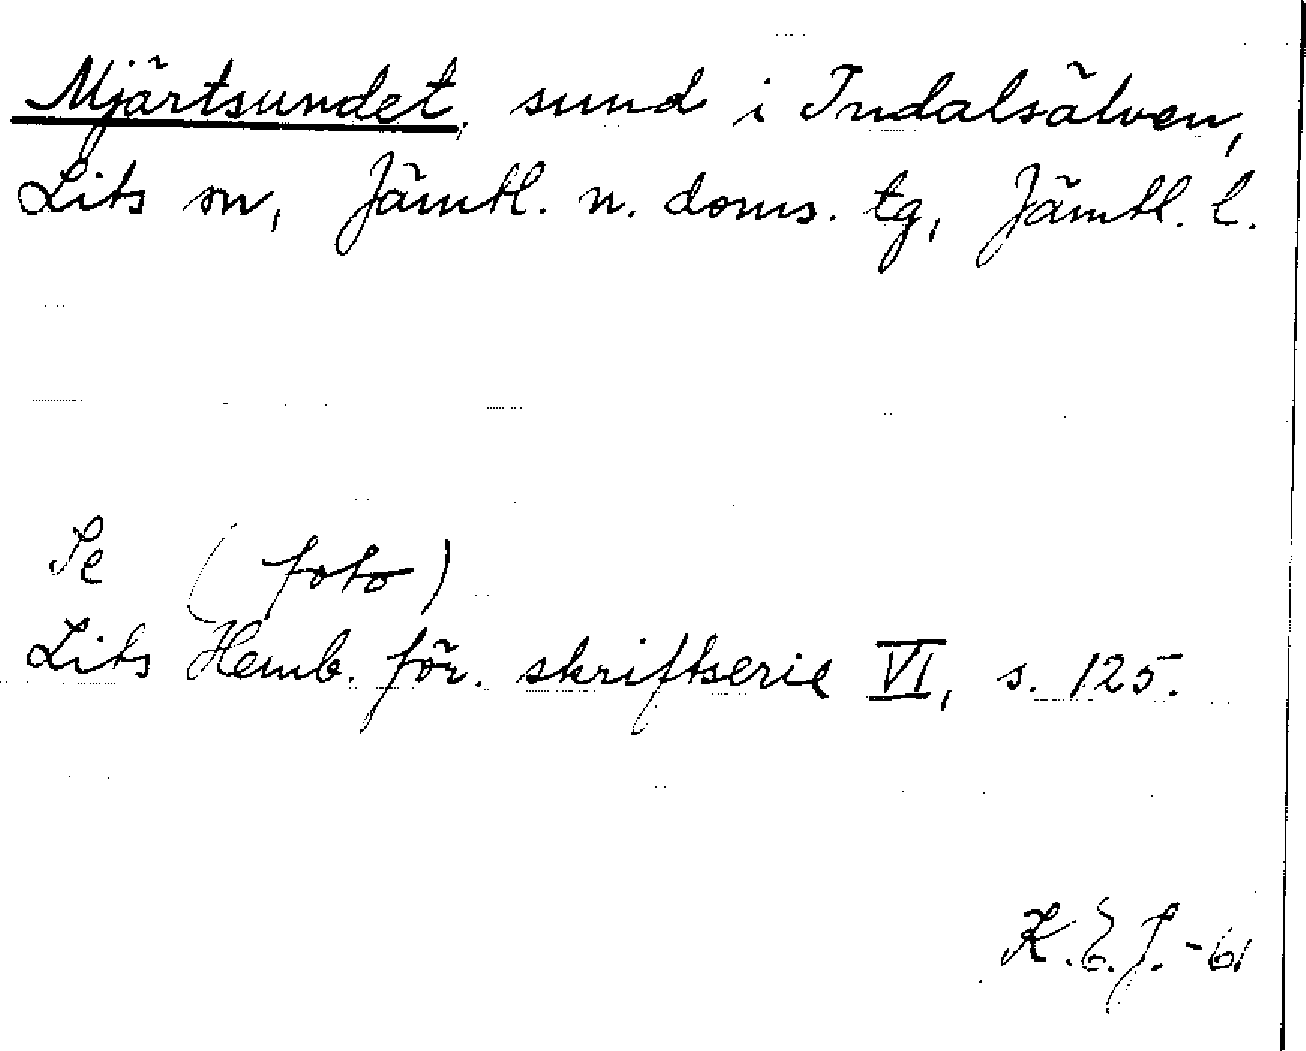 Mjärtsundet, sund i Indalsälven,
Lits sn, Jämtl. n. doms. tg, Jämtl. l.
Se (foto)
Lits Hemb. för. skriftserie VI, s. 125.
K.E.J.-61